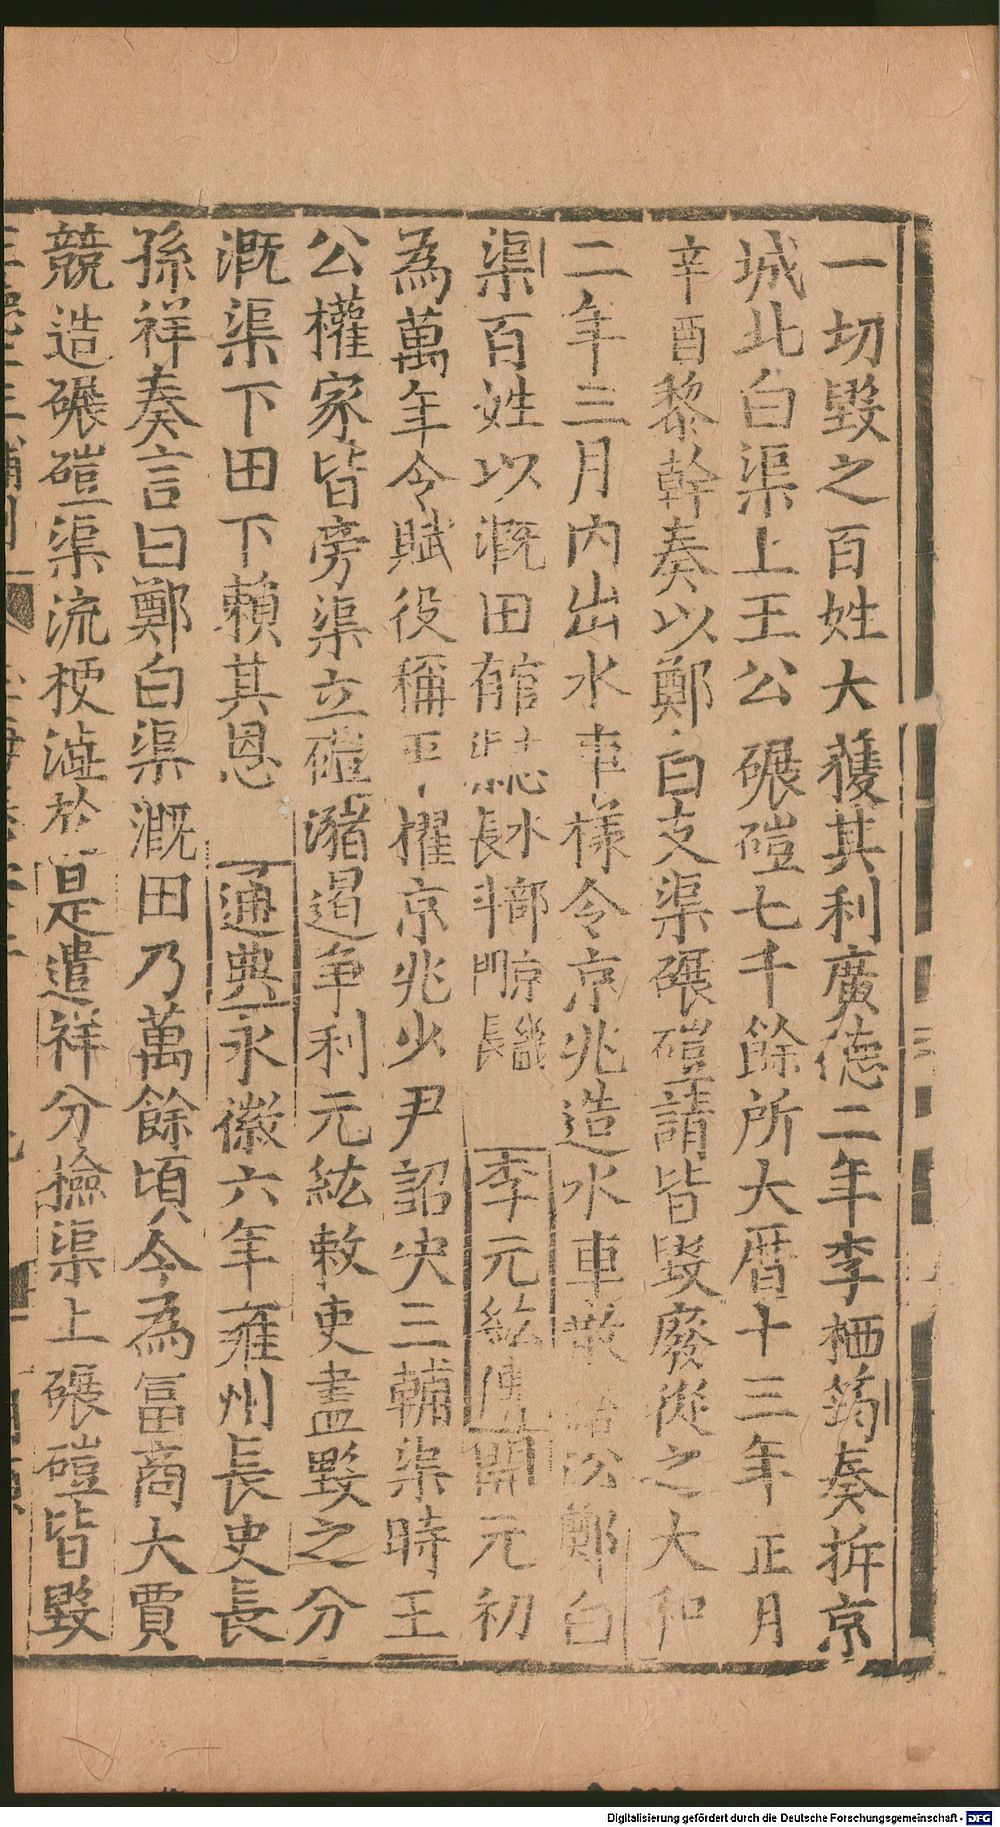 一切毀之百姓大獲其利廣德二年李栖筠奏拆京
城北白渠上王公碾磑七千餘所大曆十三年正月
辛酉黎幹奏以鄭白支渠碾磑請皆毀廢從之大和
二年三月內出水車樣令京兆造水車散給沿鄭白
渠百姓以溉田
水部京畿
有渠長斗門長
李元紘傳開元初
為萬年令賦役稱平擢京兆少尹詔決三輔渠時王
公權家皆旁渠立磑瀦遏爭利元紘敕吏盡毀之分
溉渠下田下賴其恩通典永徽六年雍州長史長
孫祥奏言曰鄭白渠溉田乃萬餘頃今為富商大賈
競造碾磑渠流梗澁於是遣祥分撿渠上碾磑皆毀
Digitalisierung gefördert durch die Deutsche Forschungsgemeinschaft - DFG